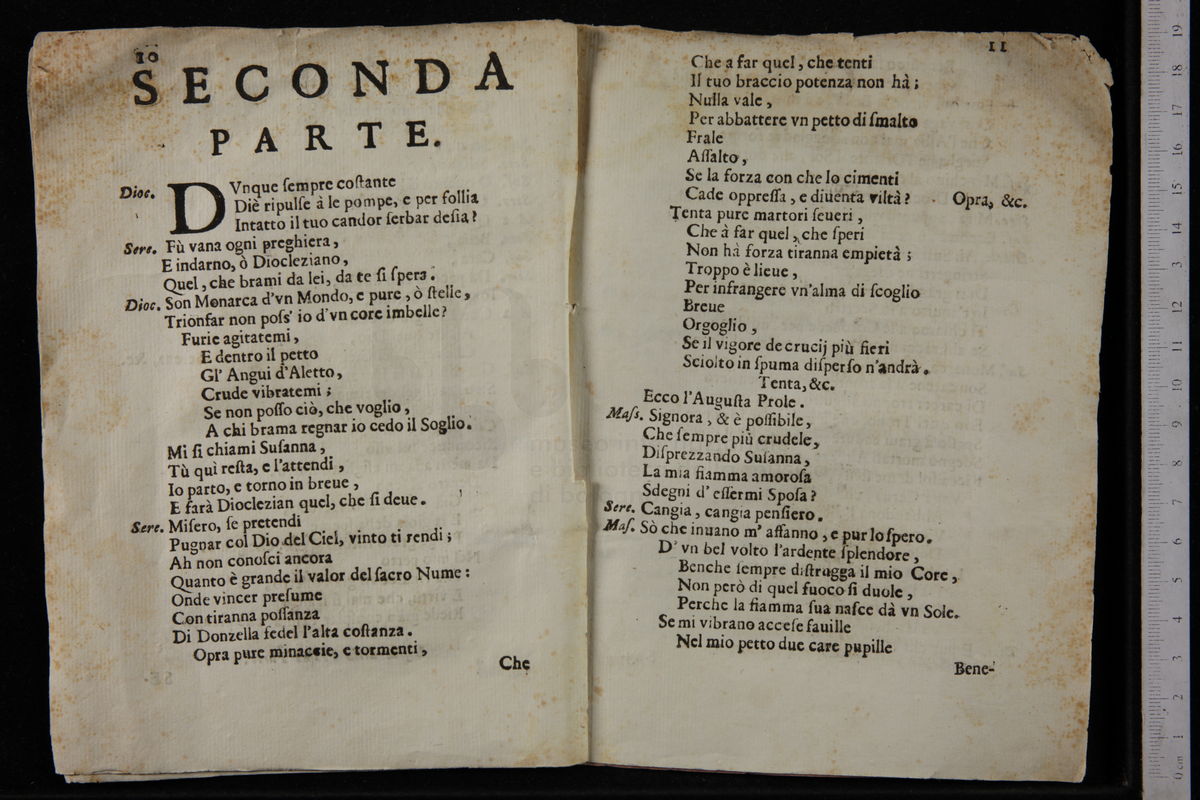 10
SECONDA
PARTE.
Dioc. DVnque ſempre coſtante
Diè ripulſe à le pompe, e per follia
Intatto il tuo candor ſerbar deſia?
Sere. Fù vana ogni preghiera,
E indarno, ò Diocleziano,
Quel, che brami da lei, da te ſi ſpera.
Dioc. Son Monarca d'vn Mondo, e pure, ò ſtelle,
Trionfar non poſs' io d'vn core imbelle?
Furie agitatemi,
E dentro il petto
Gl' Angui d'Aletto,
Crude vibratemi;
Se non poſſo ciò, che voglio,
A chi brama regnar io cedo il Soglio.
Mi ſi chiami Suſanna,
Tù quì reſta, e l'attendi,
Io parto, e torno in breue,
E farà Dioclezian quel, che ſi deue.
Sere. Miſero, ſe pretendi
Pugnar col Dio del Ciel, vinto ti rendi;
Ah non conoſci ancora
Quanto è grande il valor del ſacro Nume:
Onde vincer preſume
Con tiranna poſſanza
Di Donzella fedel l'alta coſtanza.
Opra pure minaccie, e tormenti,
Che
11
Che a far quel, che tenti
Il tuo braccio potenza non hà;
Nulla vale,
Per abbattere vn petto di ſmalto
Frale
Aſſalto,
Se la forza con che lo cimenti
Cade oppreſſa, e diuenta viltà? Opra, &c.
Tenta pure martori ſeueri,
Che à far quel, che ſperi
Non hà forza tiranna empietà;
Troppo è lieue,
Per infrangere vn'alma di ſcoglio
Breue
Orgoglio,
Se il vigore de crucij più fieri
Sciolto in ſpuma diſperſo n'andrà.
Tenta, &c.
Ecco l'Auguſta Prole.
Maſs. Signora, & è poſſibile,
Che ſempre più crudele,
Diſprezzando Suſanna,
La mia fiamma amoroſa
Sdegni d' eſſermi Spoſa?
Sere. Cangia, cangia penſiero.
Maſ. Sò che inuano m' affanno, e pur lo ſpero.
D' vn bel volto l'ardente ſplendore,
Benche ſempre diſtrugga il mio Core,
Non però di quel fuoco ſi duole,
Perche la fiamma ſua naſce dà vn Sole.
Se mi vibrano acceſe fauille
Nel mio petto due care pupille
Bene-